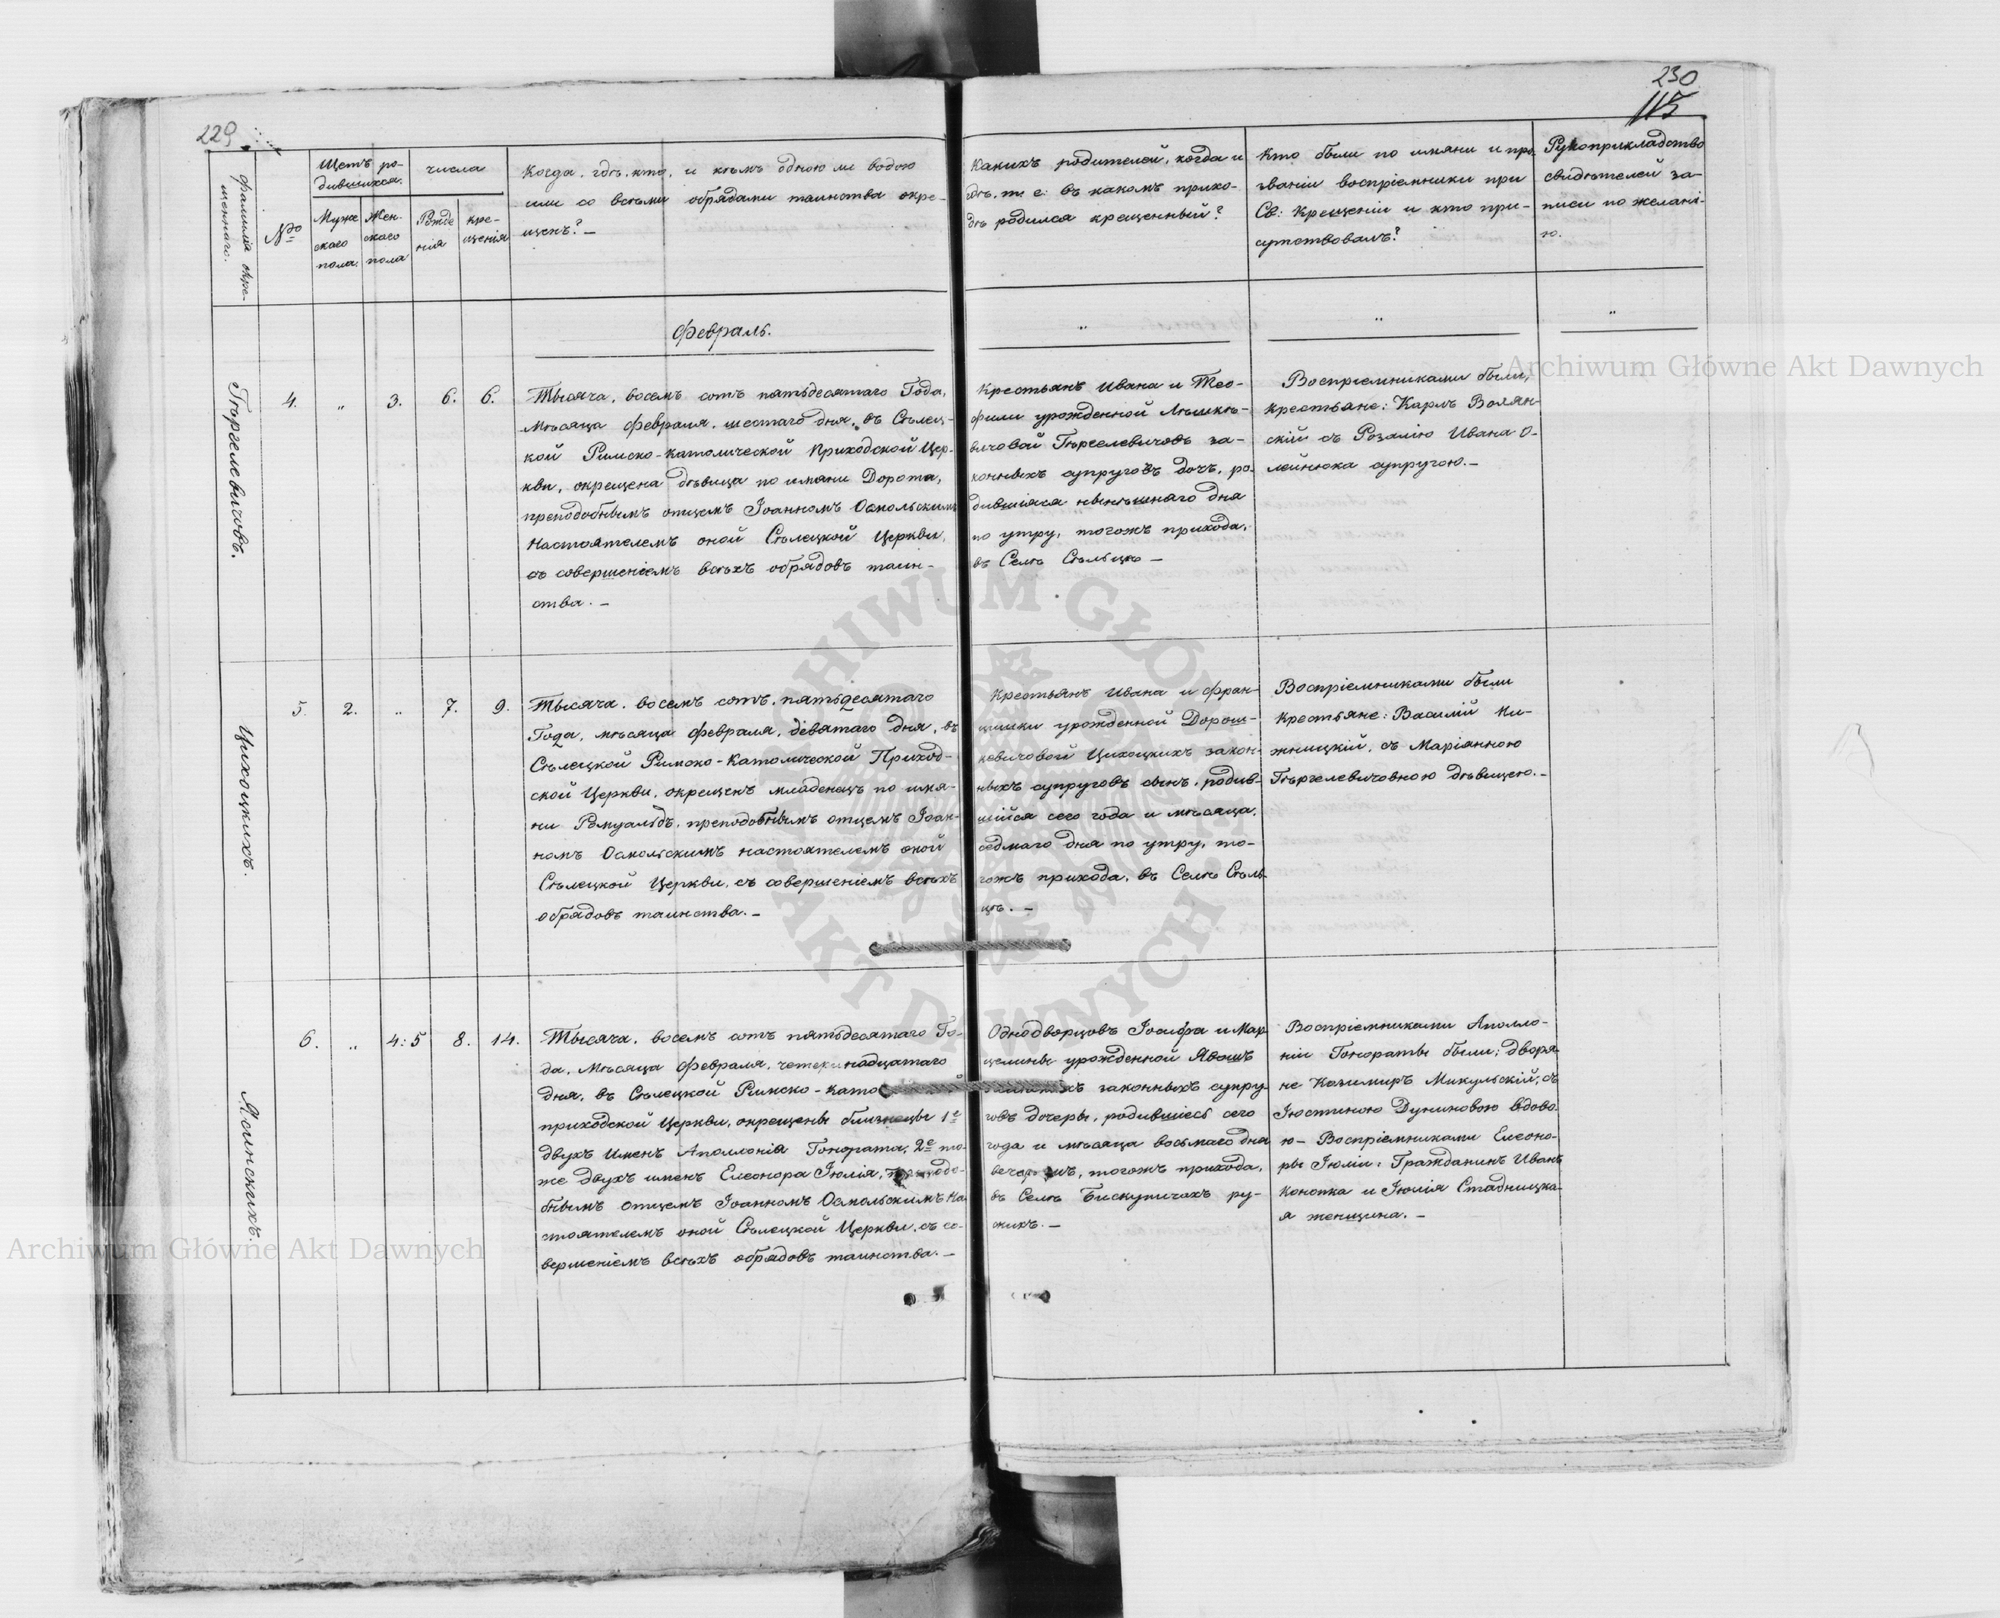 229
230
115
Фамилія окре-
щеннаго.
№
Щетъ ро-
дившихся.
Муже
скаго
пола.
Жен-
скаго
пола
числа
Рожде
нія
кре-
щенія
Когда, гдѣ, кто, и кѣмъ одною ли водою
или со всѣми обрядами таинства окре-
щенъ? —
Какихъ родителей, когда и
гдѣ, т. е: въ какомъ прихо-
дѣ родился крещенный?
Кто были по имяни и про-
званіи воспріемники при
Св: Крещеніи и кто при-
сутствовалъ?
Рукоприкладство
свидѣтелей за-
писи по желані-
ю.
Февраль.
Гѣргелевичовъ.
4. „ 3. 6. 6.
Тысяча, восемъ сотъ пятьдесятаго Года,
Мѣсяца февраля, шестаго дня, въ Сѣлец-
кой Римско-католической Приходской Цер-
кви, окрещена дѣвица по имяни Дорота,
преподобнымъ отцемъ Іоанномъ Осмольскимъ
Настоятелемъ оной Сѣлецкой Церкви,
съ совершеніемъ всѣхъ обрядовъ таин-
ства. —
Крестьянъ Ивана и Тео-
фили урожденной Лѣшкѣ-
вичовой Гѣргелевичовъ за-
конныхъ супруговъ дочь, ро-
дившіяся нынѣшняго дня
по утру, тогожъ прихода,
въ Селѣ Сѣльцѣ —
Воспріемниками были,
крестьяне: Карлъ Волян-
скій съ Розалію Ивана О-
лейнюка супругою. —
Цихоцкихъ.
5. 2. „ 7. 9.
Тысяча, восемъ сотъ, пятьдесятаго
Года, мѣсяца февраля, девятаго дня, въ
Сѣлецкой Римско-Католической Приход-
ской Церкви, окрещенъ младенецъ по имя-
ни Ромуальдъ, преподобнымъ отцемъ Іоан-
номъ Осмольскимъ настоятелемъ оной
Сѣлецкой Церкви, съ совершеніемъ всѣхъ
обрядовъ таинства. —
Крестьянъ Ивана и Фран-
цишки урожденной Дорош-
кевичовой Цихоцкихъ закон-
ныхъ супруговъ сынъ, родив-
шійся сего года и мѣсяца,
седмаго дня по утру, то-
гожъ прихода, въ Селѣ Сѣль-
цѣ. —
Воспріемниками были
Крестьяне: Василій Ки-
жницкій, съ Маріянною
Гѣргелевичовною дѣвицею. —
Ясинскихъ.
6. „ 4:5 8. 14.
Тысяча, восемъ сотъ пятьдесятаго Го-
да, Мѣсяца февраля, четернадцатаго
дня, въ Сѣлецкой Римско-като
приходской Церкви, окрещены близнецы 1е
двухъ Именъ Аполлонія Гонората, 2е то-
же двухъ именъ Елеонора Іюлія,
бнымъ отцемъ Іоанномъ Осмольскимъ На-
стоятелемъ оной Сѣлецкой Церкви, съ со-
вершеніемъ всѣхъ обрядовъ таинства. —
Однодворцовъ Іосифа и Мар-
целины урожденной Явошъ
законныхъ супру-
говъ дочеры, родившіесь сего
года и мѣсяца восьмаго дня
тогожъ прихода,
въ Селѣ Бискупичахъ ру-
жихъ. —
Воспріемниками Аполло-
ніи Гонораты были; дворя-
не Казимиръ Микульскій, съ
Іюстиною Дуниновою вдово-
ю — Воспріемниками Елеоно-
ры Іюліи: Гражданинъ Иванъ
Конопка и Іюлія Стадницка-
я женщина. —
Archiwum Główne Akt Dawnych
Archiwum Główne Akt Dawnych
ARCHIWUM GŁÓWNE
AKT DAWNYCH